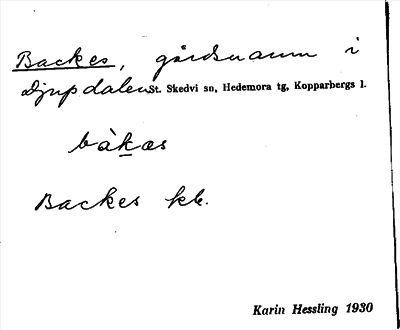 Backes, gårdsnamn i
Djupdalen St. Skedvi sn, Hedemora tg, Kopparbergs l.
bàkas
Backes kb.
Karin Hessling 1930